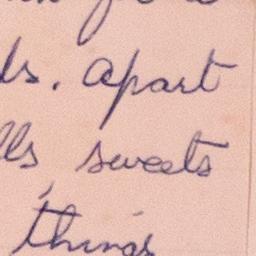 ls. apart
lls, sweets
things